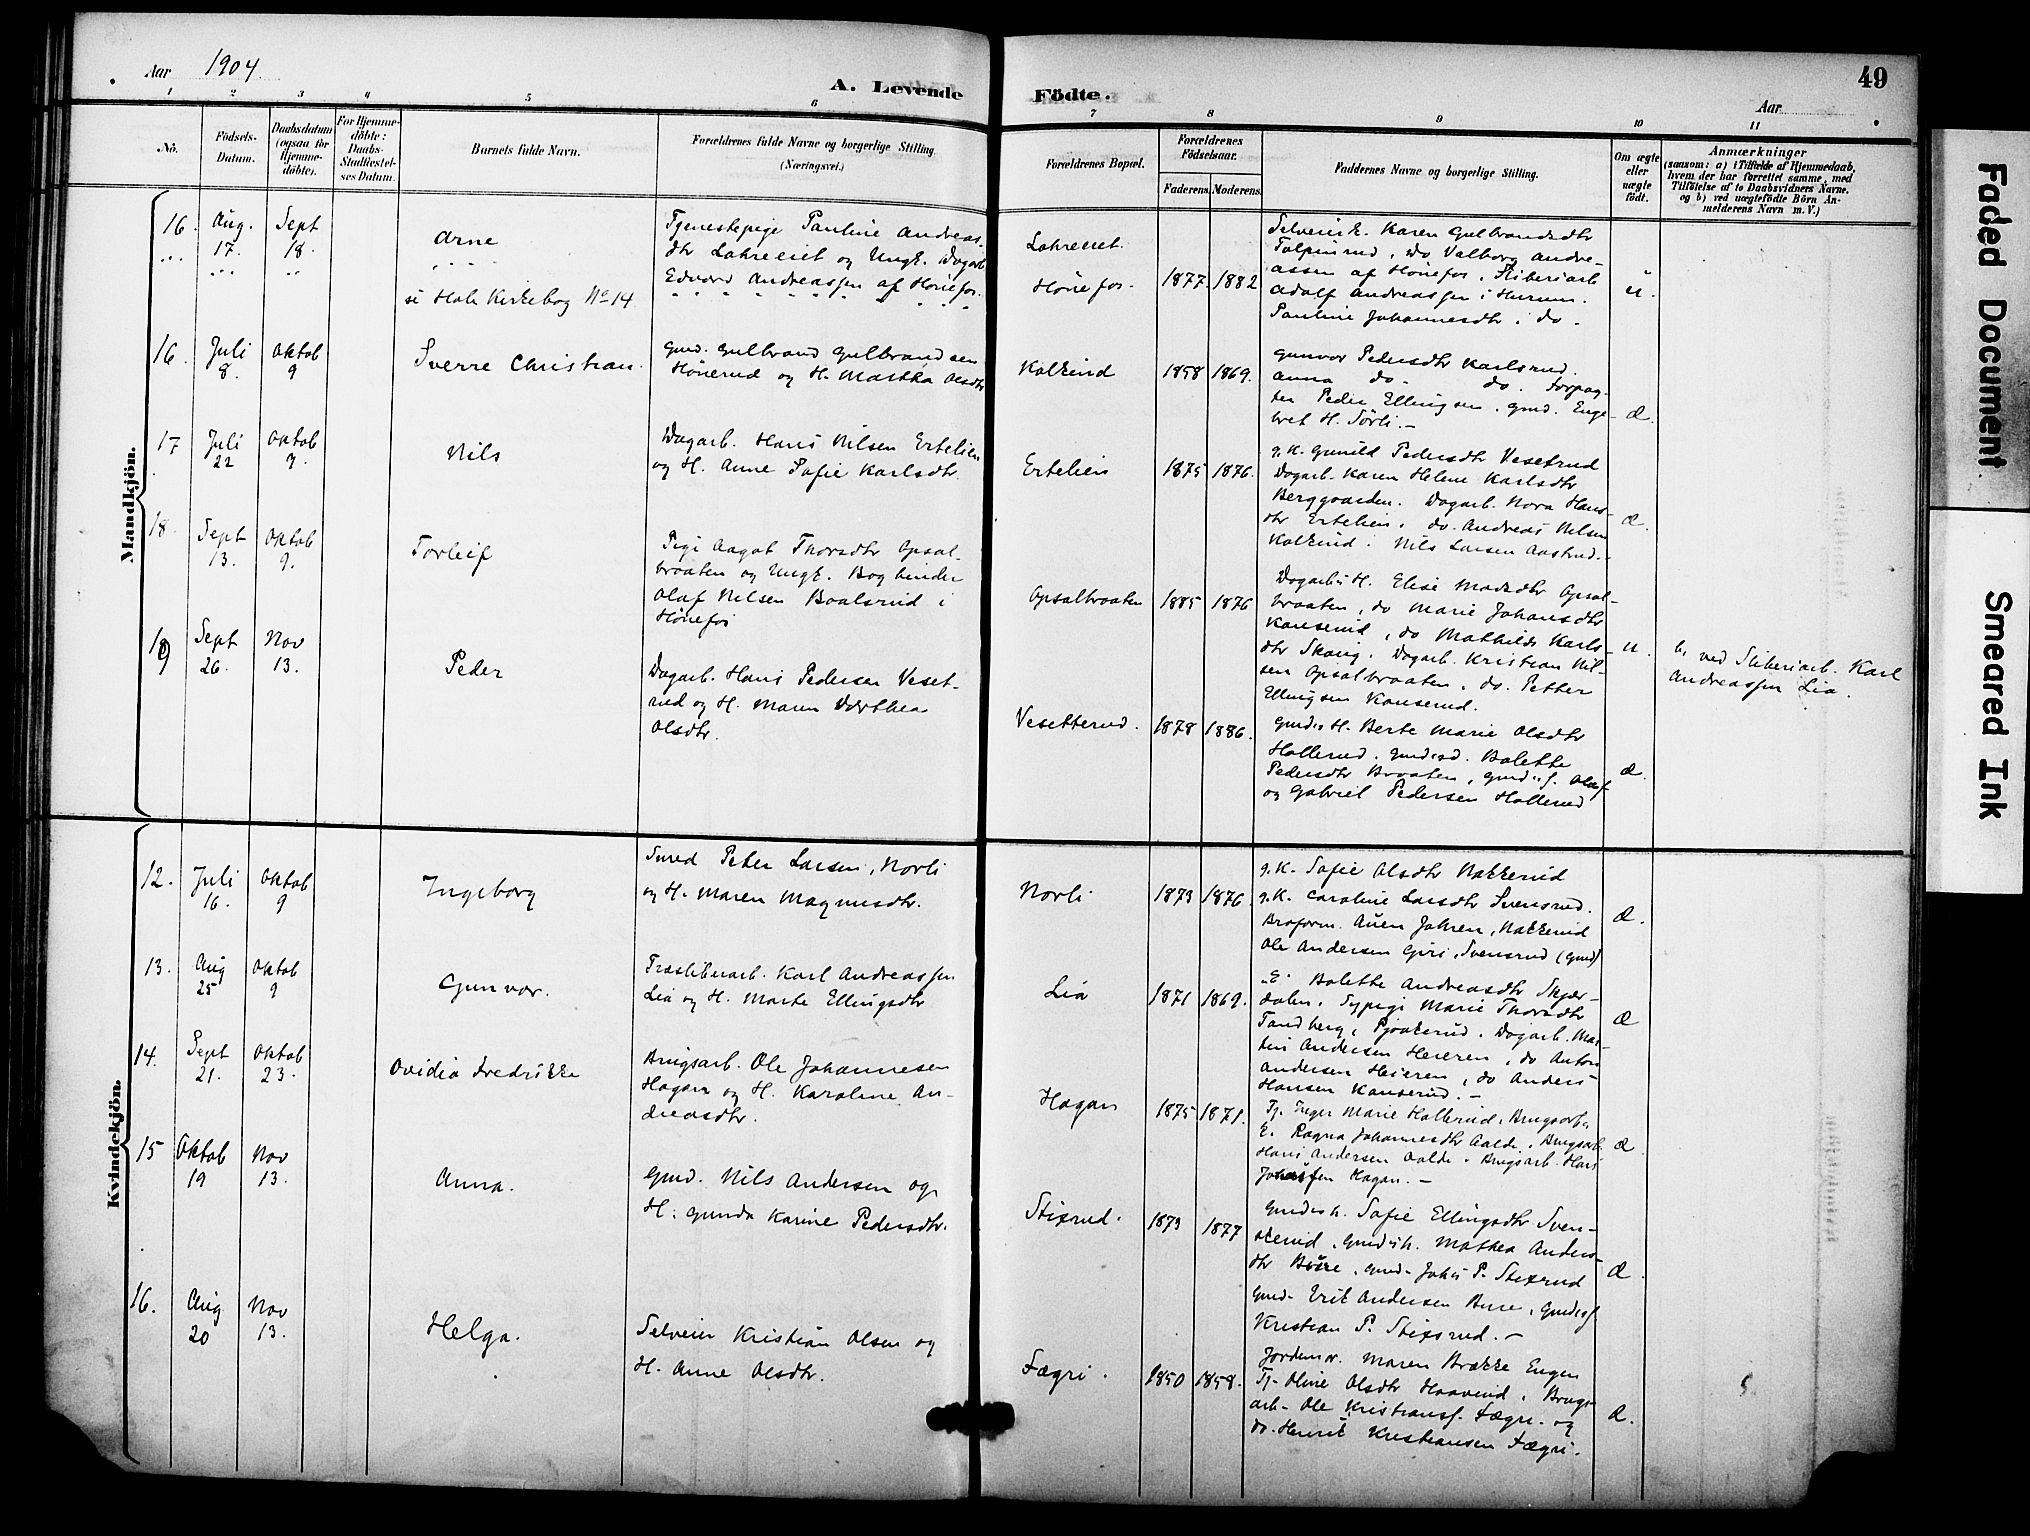 Aar 1904.
A. Levende Födte.
49
Aar
1 2 3 4 5 6 7 8 9 10 11
No.
Födsels-Datum.
Daabsdatum (ogsaa for Hjemme-döbte).
For Hjemme-döbte: Daabs-Stadfæstel-ses Datum.
Barnets fulde Navn.
Forældrenes fulde Navne og borgerlige Stilling. (Næringsvei.)
Forældrenes Bopæl.
Forældrenes Födselsaar.
Faderens. Moderens.
Faddernes Navne og borgerlige Stilling.
Om ægte eller uægte födt.
Anmærkninger
(saasom: a) i Tilfælde af Hjemmedaab, hvem der har forrettet samme, med Tilföielse af to Daabsvidners Navne. og b) ved uægtefödte Börn An-melderens Navn m. V.)
Mandkjön.
16. Aug. 17. Sept 18.
Arne
se Hole Kirkebog No 14
Tjenestepige Pauline Andreas-
dtr Lahreeiet og Ungk. Dagarb
Edvard Andreassen af Hönefos.
Lahreeiet.
Hönefos.
1877. 1882
Selveierk. Karen Gulbrandsdtr
Tolpinrud, do Valborg Andre-
assen af Hönefos, Sliberiarb
Adolf Andreassen i Hurum.
Pauline Johannesdtr i do.
u.
16. Juli 8. Oktob 9
Sverre Christian.
Gmd. Gulbrand Gulbrandsen
Hönerud og H. Marthea Olsdtr
Kolkind
1858 1869.
Gunvor Pedersdtr Karlsrud.
Anna do. do. Forpag-
ter Peder Ellingsen, gmd. Enge-
bret H. Sørli.-
Æ.
17 Juli 22 Oktob 9.
Nils
Dagarb. Hans Nilsen Ertelien
og H. Anne Sofie Karlsdtr.
Ertelien
1875 1876.
g.K. Gunild Pedersdtr Vesetrud
Dagarb. Karen Helene Karlsdtr
Berggaarden. Dagarb. Nora Hans-
dtr Ertelien, do. Andreas Nilsen
Kolkind. Nils Larsen Aastrud.-
Æ.
18. Sept 13. Oktob 9.
Torleif
Pige Aagot Thorsdtr Opsal-
braaten og Ungk. Bogbinder
Olaf Nilsen Baalsrud i
Hönefos
Opsalbraaten
1885 1876
Dagarb.s H. Elise Madsdtr Opsal-
braaten, do Marie Johansdtr
Kanserud, do Mathilde Karls-
dtr Skaug, Dagarb. Kristian Nil-
sen Opsalbraaten, do. Petter
Ellingsen Kanserud.
u.
b, ved Sliberiarb. Karl
Andreassen Lia.
19 Sept 26. Nov 13.
Peder
Dagarb. Hans Pedersen Veset-
rud og H. Maren Dorthea
Olsdtr.
Vesetterud.
1878 1886.
Gmds H. Berte Marie Olsdtr
Hollerud, gmdsd. Bolette
Pedersdtr Braaten, gmds s. Olaf
og Gabriel Pedersen Hollerud
Æ.
Kvindekjön.
12. Juli 16. Oktob 9
Ingeborg
Smed Peter Larsen, Norli
og H. Maren Magnusdtr.
Norli
1873 1876
g.K. Sofie Olsdtr Nakkerud
g.K. Caroline Larsdtr Svensrud.
Broform. Auen Jahren, Nakkerud
Ole Andersen Guri, Svensrud (gmd)
Æ.
13. Aug 25 Oktob 9
Gunvor.
Træsliberarb. Karl Andreassen
Lia og H. Marte Ellingsdtr
Lia
1871 1869.
E. Bolette Andreasdtr Skjær-
dalen, Sypige Marie Thorsdtr
Tandberg, Pjaakerud. Dagarb. Mar-
tin Andersen Heieren, do Anton
Andersen Heieren, do Anders
Hansen Kanserud.-
Æ
14. Sept 21. Oktob 23.
Ovidia Fredrikke
Brugsarb. Ole Johannesen
Hagan og H. Karoline An-
dreasdtr.
Hagan
1875 1871.
Tj. Inger Marie Hollerud, Brugsarb.
E. Ragna Johannesdtr Aalde, Brugsarb.
Hans Andersen Aalde, Brugsarb. Hans
Johansen Hagan.-
Æ
15 Oktob 19 Nov 13.
Anna.
Gmd. Nils Andersen og
H. Gunda Karine Pedersdtr.
Stixrud.
1873 1877
Gmdsh. Sofie Ellingsdtr Sven-
skerud, gmdsh. Mathea Anders-
dtr Bure, gmd. Johs P. Stixrud
Gmd. Erik Andersen Bure, gmdss
Kristian P. Stixrud.-
Æ.
16. Aug 20 Nov 13.
Helga.
Selveier Kristian Olsen og
H. Anne Olsdtr.
Fægri.
1850 1858.
Jordemor. Maren Brække Engen
Tj. Oline Olsdtr Haaverud, Brugs-
arb. Ole Kristians. Fægri. og
do. Henrik Kristiansen Fægri.
Æ.
Faded Document
Smeared Ink